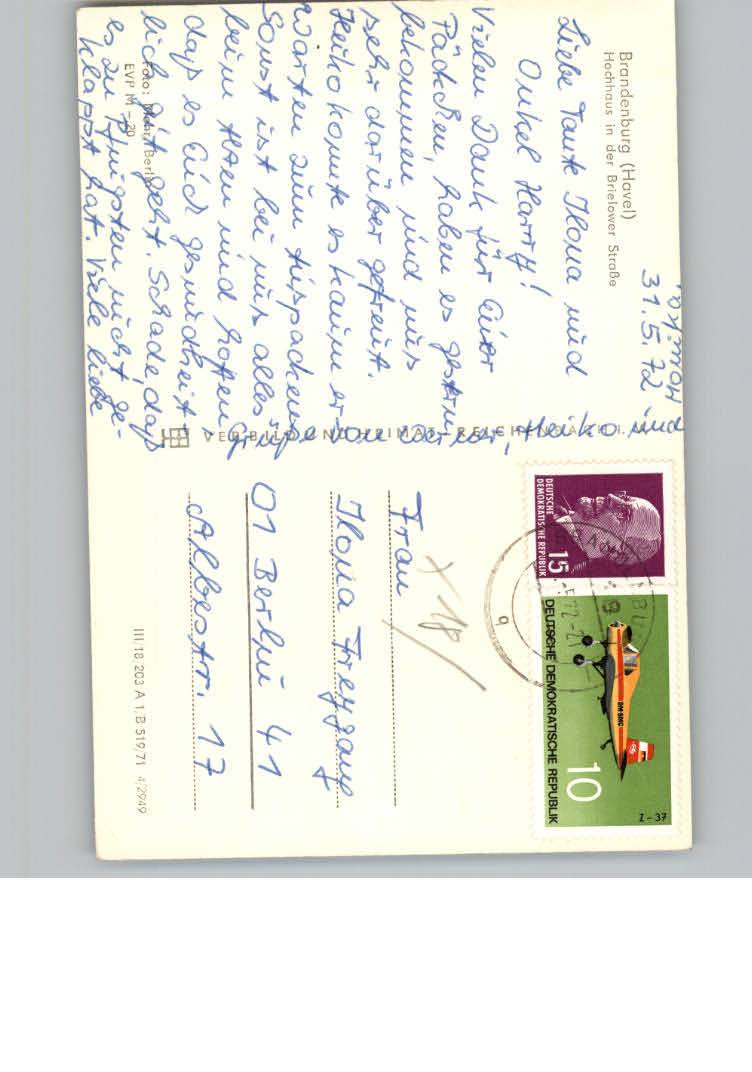 Brandenburg (Havel)
Hochhaus in der Brielower Straße
31.5.72
Liebe Tante Ilona und
Onkel Harry!
Vielen Dank für Euer
Päckchen, haben es gestern
bekommen und uns
sehr darüber gefreut.
Heiko konnte es kaum er
warten zum Auspacken.
Sonst ist bei uns alles
beim Alten und hoffen,
daß es Euch gesundheit-
lich gut geht. Schade, daß
es zu Pfingsten nicht ge-
klappt hat. Viele liebe
Grüße von Heiko und
Foto: Mohr, Berlin
EVP M -.20
VERB BILD UND HEIMAT REICHENBACH i. V.
DEUTSCHE
DEMOKRATISCHE REPUBLIK
15
DEUTSCHE DEMOKRATISCHE REPUBLIK
10
Z-37
DM-SMC
Frau
Ilona
01 Berlin 41
Albestr. 17
III/18/203 A 1/B 519/71 4/2949